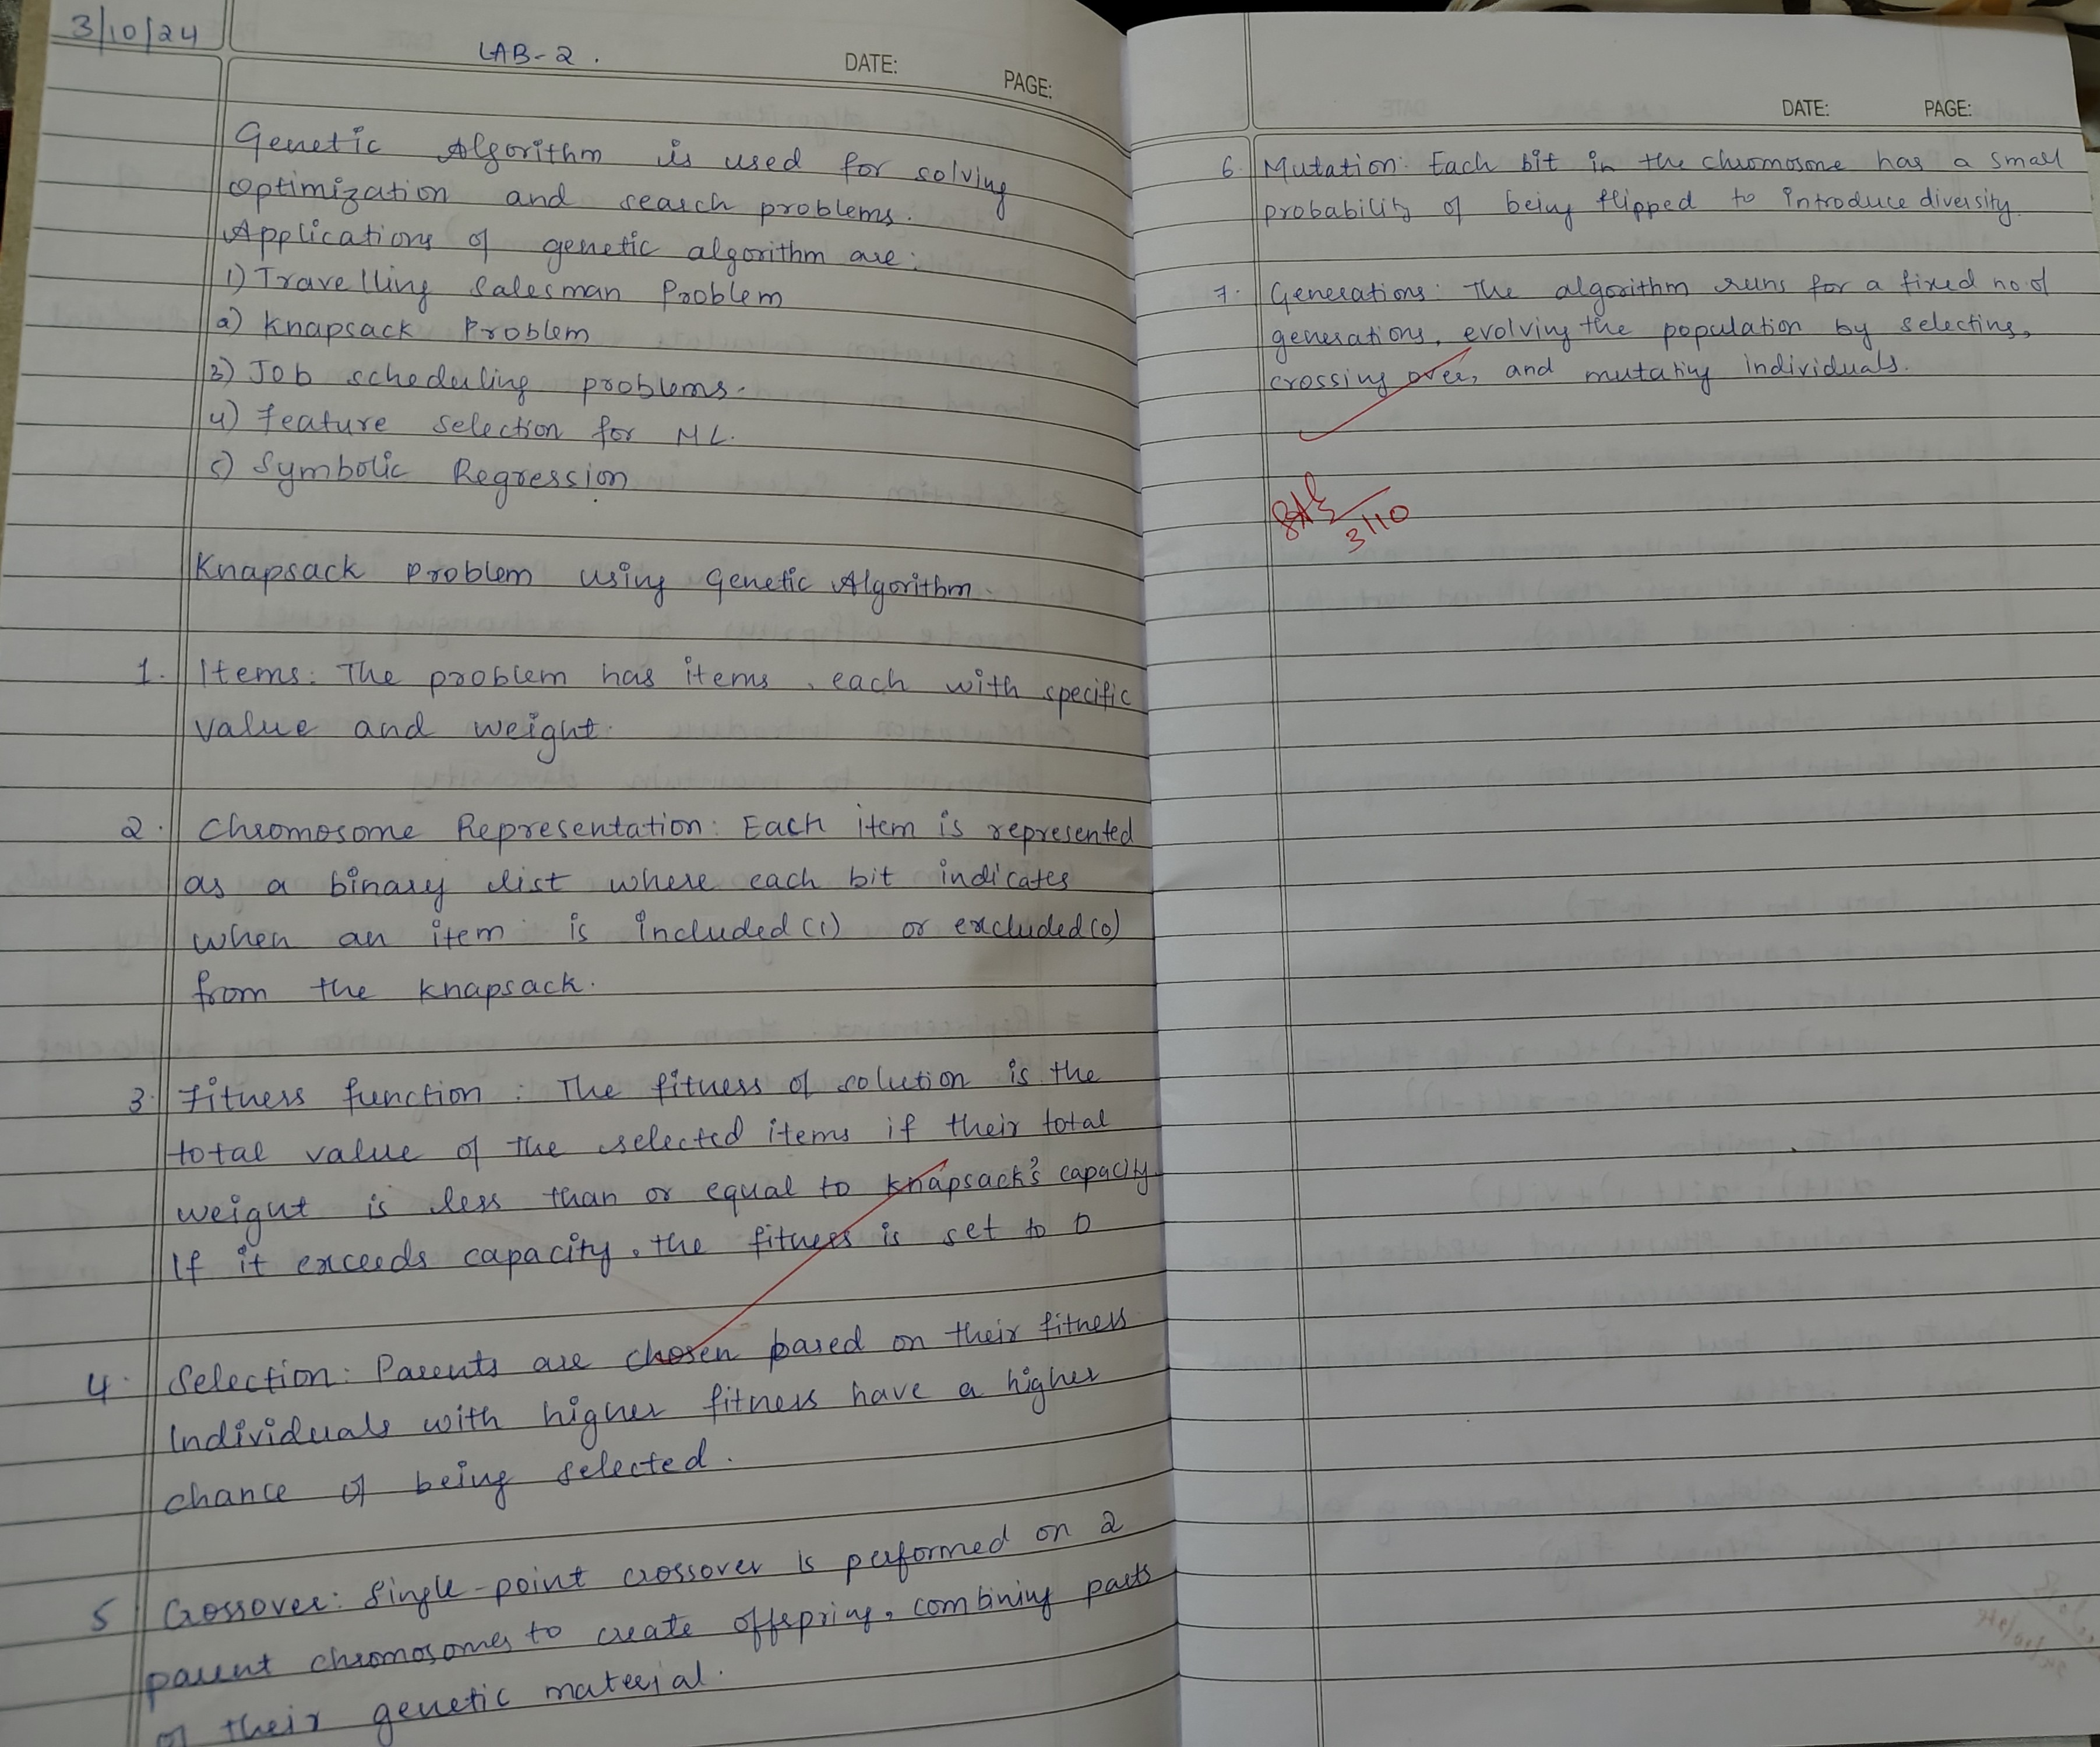 3/10/24
LAB-2.
DATE:
PAGE:
Genetic Algorithm is used for solving
optimization and search problems.
Applications of genetic algorithm are:
1) Travelling Salesman Problem
2) Knapsack Problem
3) Job scheduling problems.
4) Feature selection for ML.
5) Symbolic Regression
Knapsack problem using Genetic Algorithm.
1. Items: The problem has items, each with specific
value and weight.
2. Chromosome Representation: Each item is represented
as a binary list where each bit indicates
when an item is included (1) or excluded (0)
from the knapsack.
3. Fitness function: The fitness of solution is the
total value of the selected items if their total
weight is less than or equal to knapsack's capacity
If it exceeds capacity, the fitness is set to 0
4. Selection: Parents are chosen based on their fitness
Individuals with higher fitness have a higher
chance of being selected.
5 Crossover: Single-point crossover is performed on 2
parent chromosomes to create offspring, combining parts
of their genetic material.
DATE: PAGE:
6. Mutation: Each bit in the chromosone has a small
probability of being flipped to introduce diversity.
7. Generations: The algorithm runs for a fixed no. of
generations, evolving the population by selecting,
crossing over, and mutating individuals.
3/10